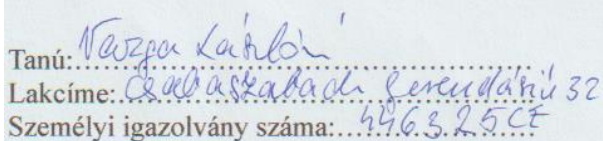 Tanú: Varga Lászlóné
Lakcíme: Csabaszabadi Gerendási ú 32
Személyi igazolvány száma: 446325CE